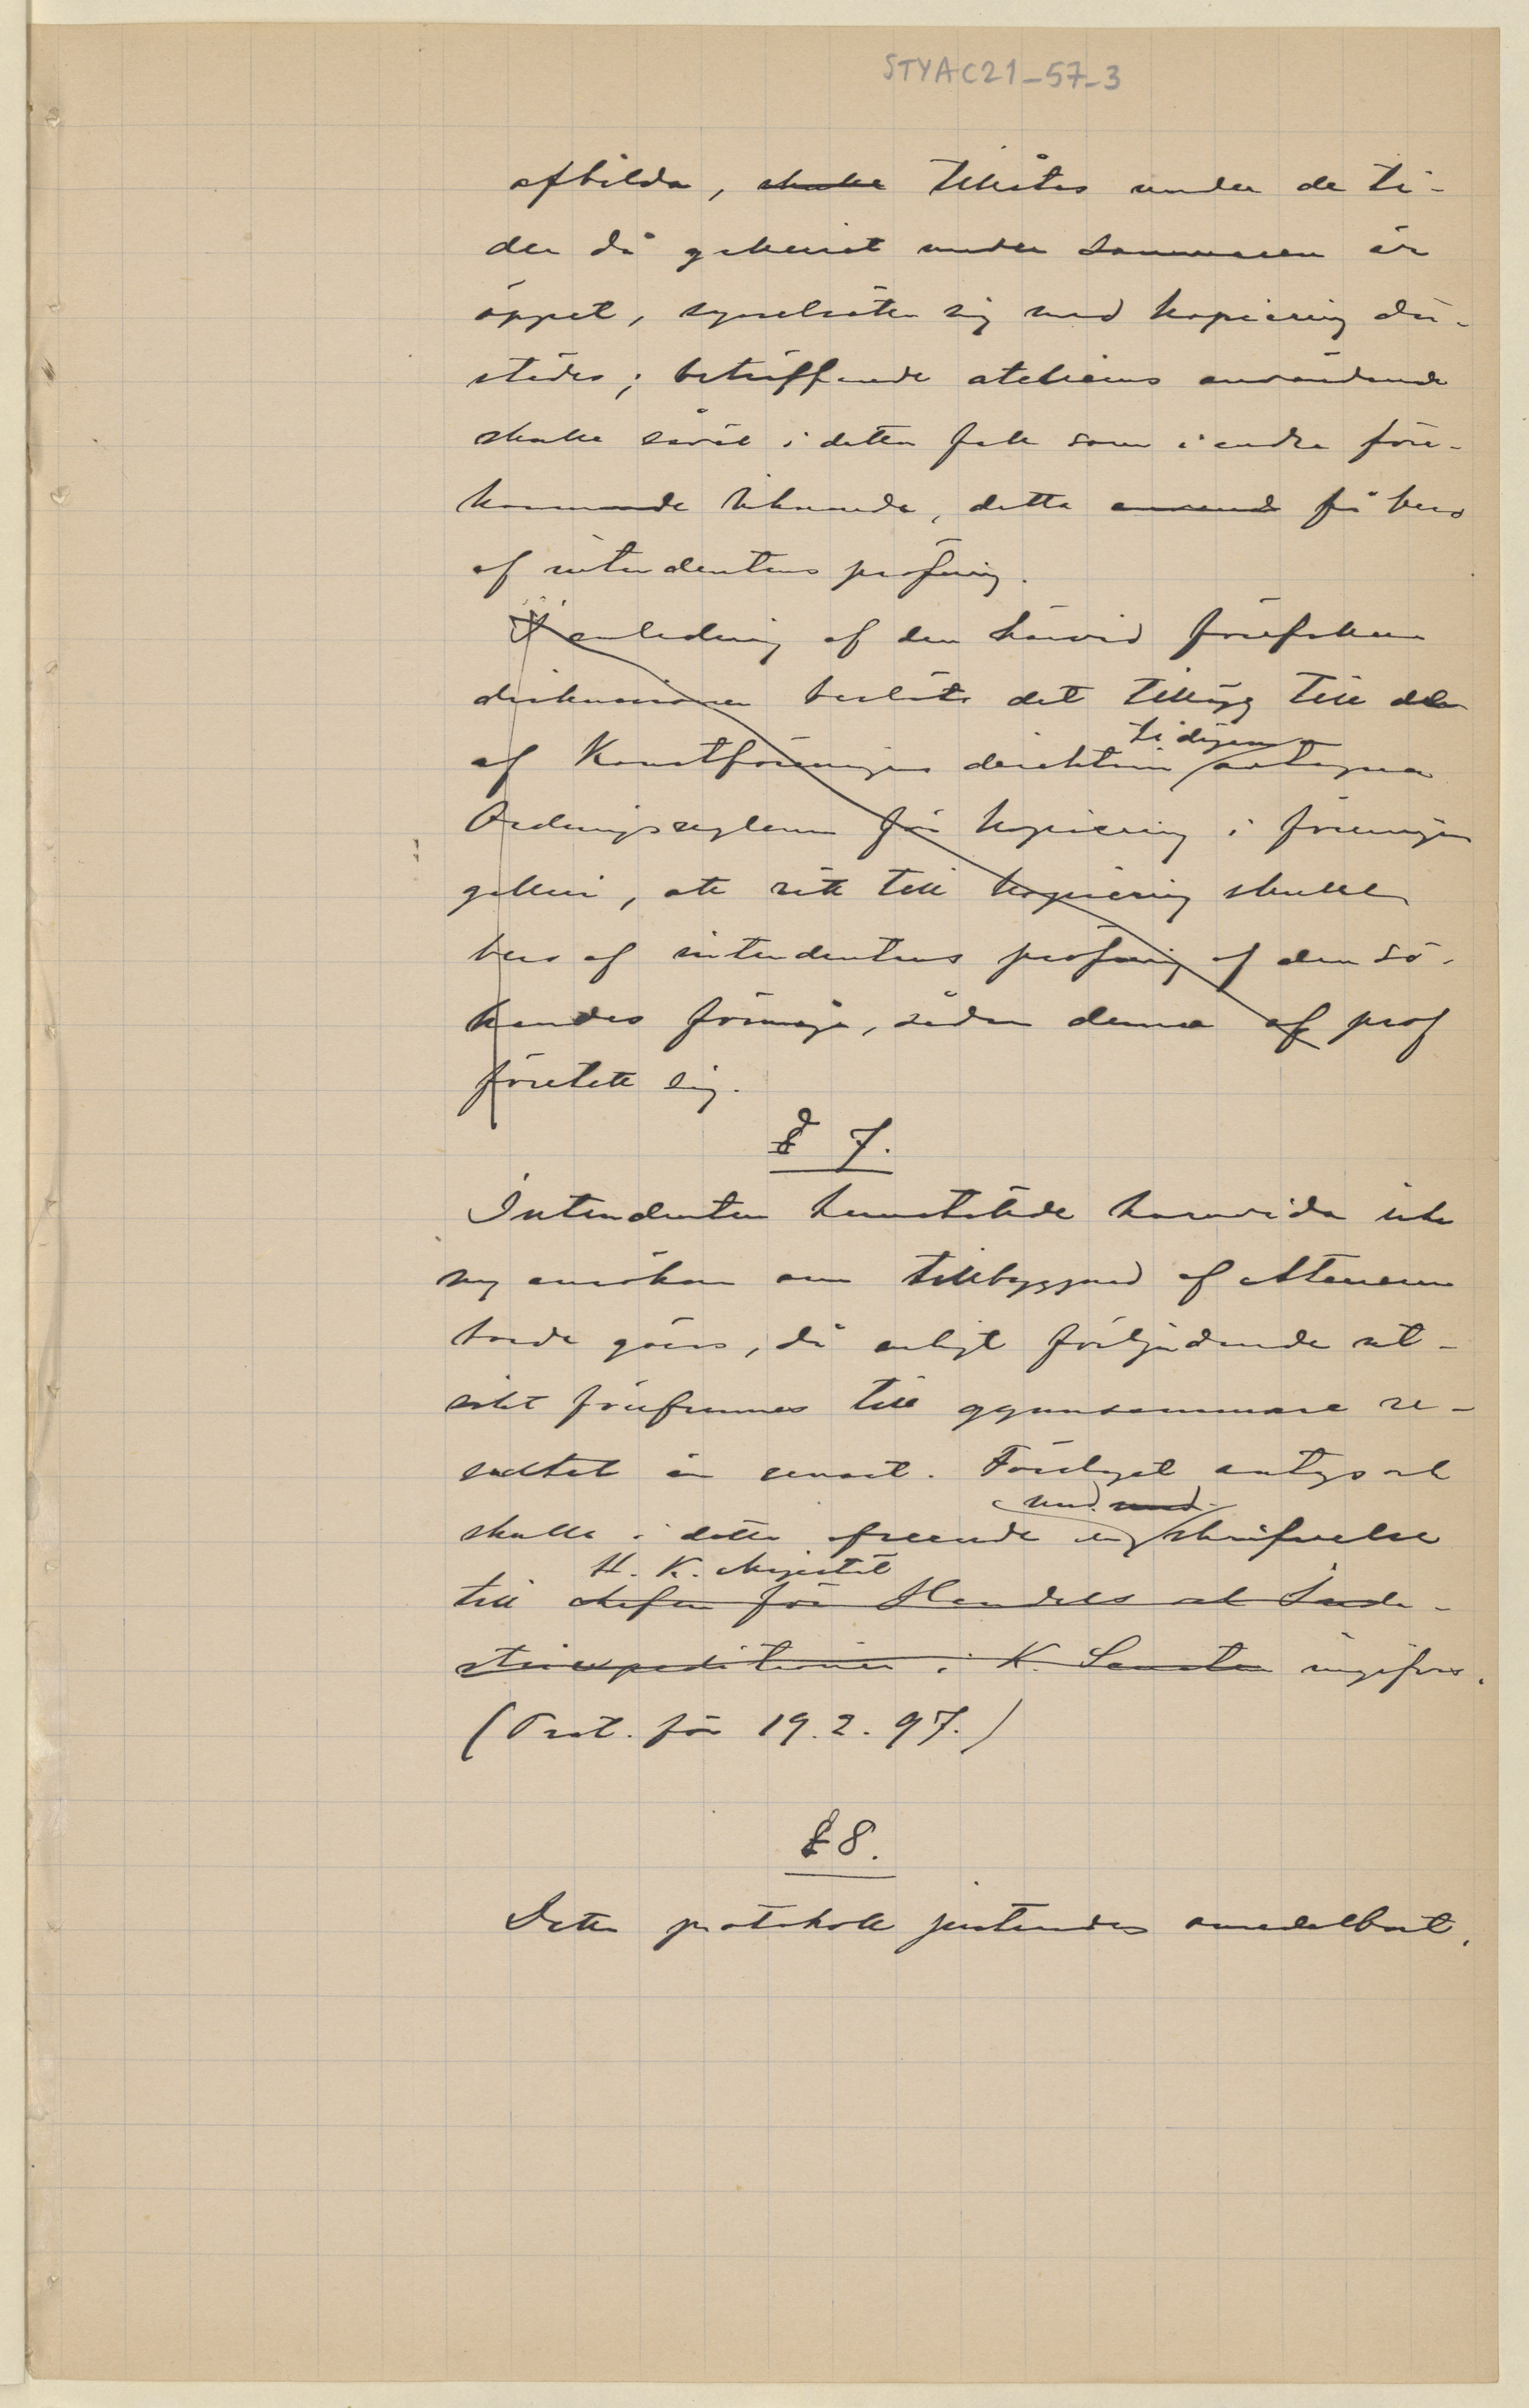 STYAC21-57-3
afbilda, skulle tillåtas under de ti-
der då galleriet under sommaren är
öppet, sysselsätta sig med kopiering där-
städes; beträffande ateliererns användande
skulle såväl i detta fall som i andra före-
kommande liknande, detta få bero
af intendentens pröfning.
I anledning af den härvid förefallna
diskussionen beslöts det tillägg till de
tidigare
af Konstföreningens direktion antagna
Ordningsreglerna för kopiering i föreningens
galleri, att rätt till kopiering skulle
bero af intendentens pröfning af den sö-
kandes förmåga, sedan denna af prof
företett sig.
§ 7.
Intendenten hemstälde huruvida icke
ny ansökan om tillbyggnad af Ateneum
borde göras, då enligt förljudande ut-
sikt förefunnes till gynnsammare re-
sultat än senast. Förslaget antogs och
und. med
skulle i detta afseende en skrifvelse
H. K. Majestät
till chefen för Handels och Indu-
striexpeditionen i K. Senaten ingifvas.
(Prot. för 19.2.97.)
§ 8.
Detta protokoll justerades omedelbart.